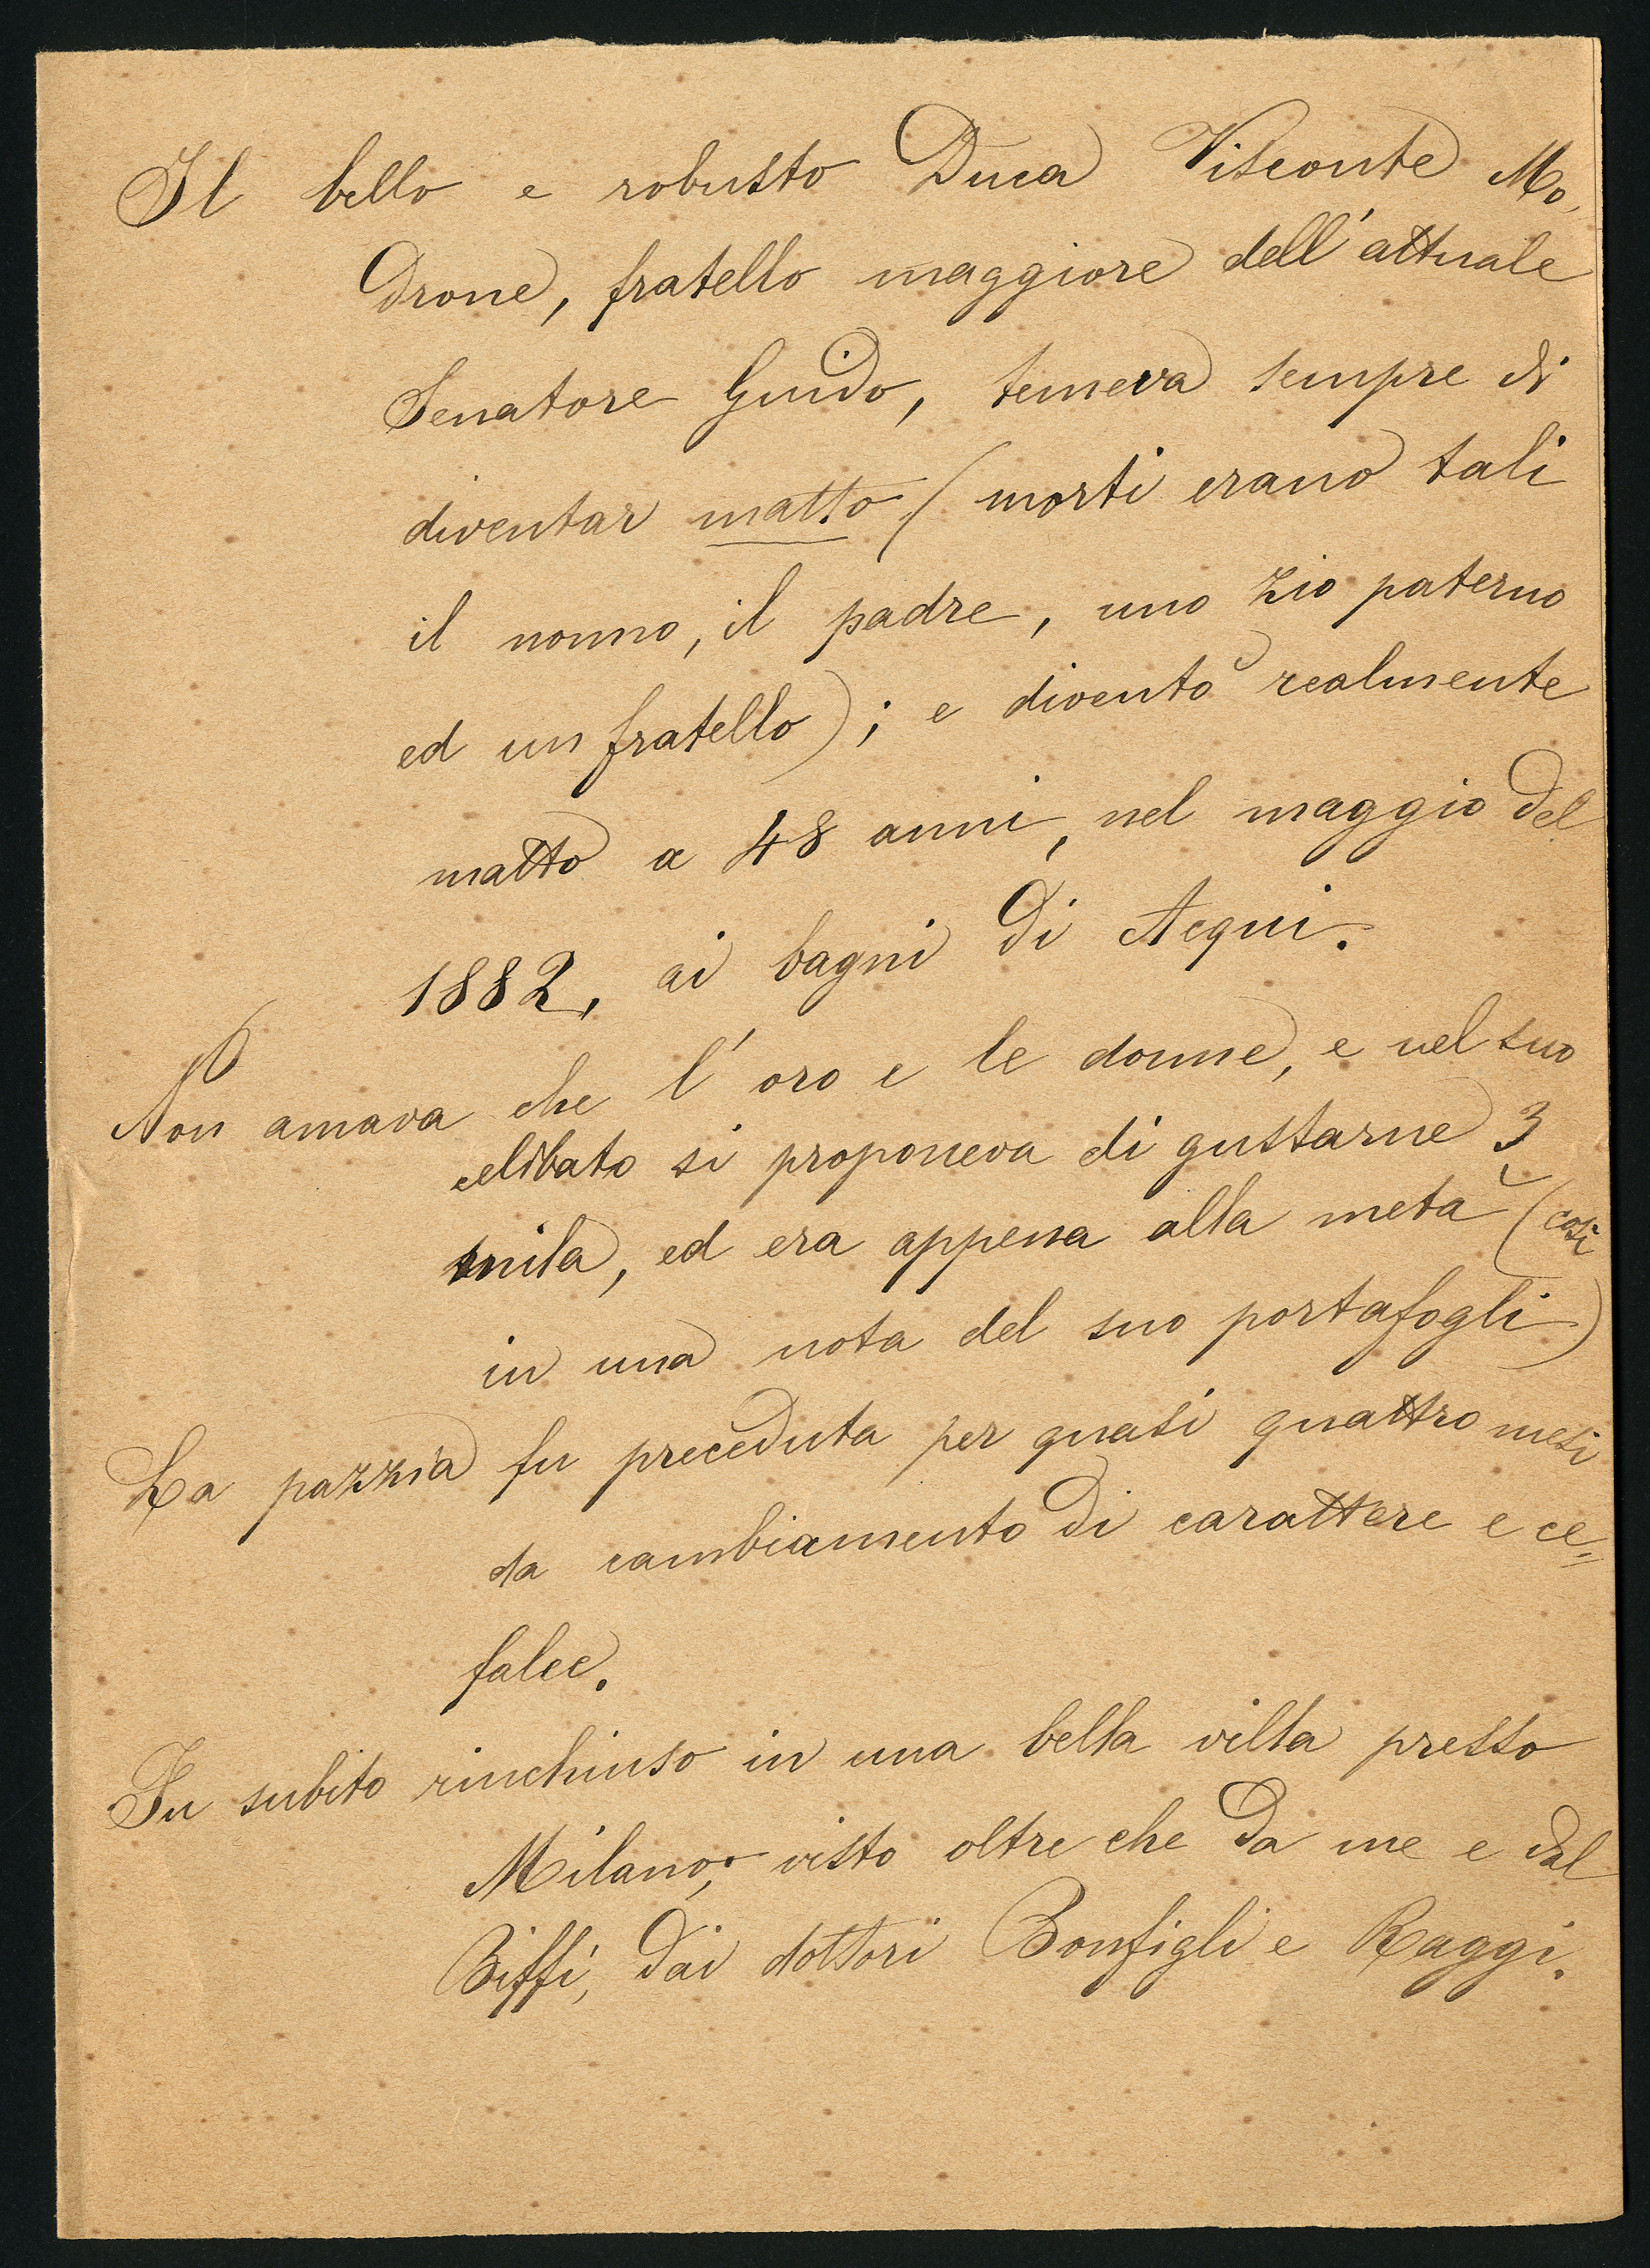 Il bello e robusto Duca Visconte Mo,
drone, fratello maggiore dell'attuale
Senatore Guido, temeva sempre di
diventar matto (morti erano tali
il nonno, il padre, uno zio paterno
ed un fratello); e diventò realmente
matto a 48 anni, nel maggio del
1882, ai bagni di Acqui.
Non amava che l'oro e le donne, e nel suo
celibato si proponeva di gustarne 3
mila, ed era appena alla metà (così
in una nota del suo portafogli)
La pazzia fu preceduta per quasi quattro mesi
da cambiamento di carattere e ce=
falee.
Fu subito rinchiuso in una bella villa presso
Milano; visto oltre che da me e dal
Biffi, dai dottori Bonfigli e Raggi.